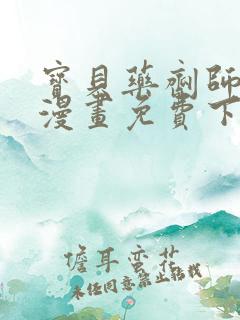 寶見藥劑師
漫畫免費下
儋耳蠻花
未经同意禁止转载